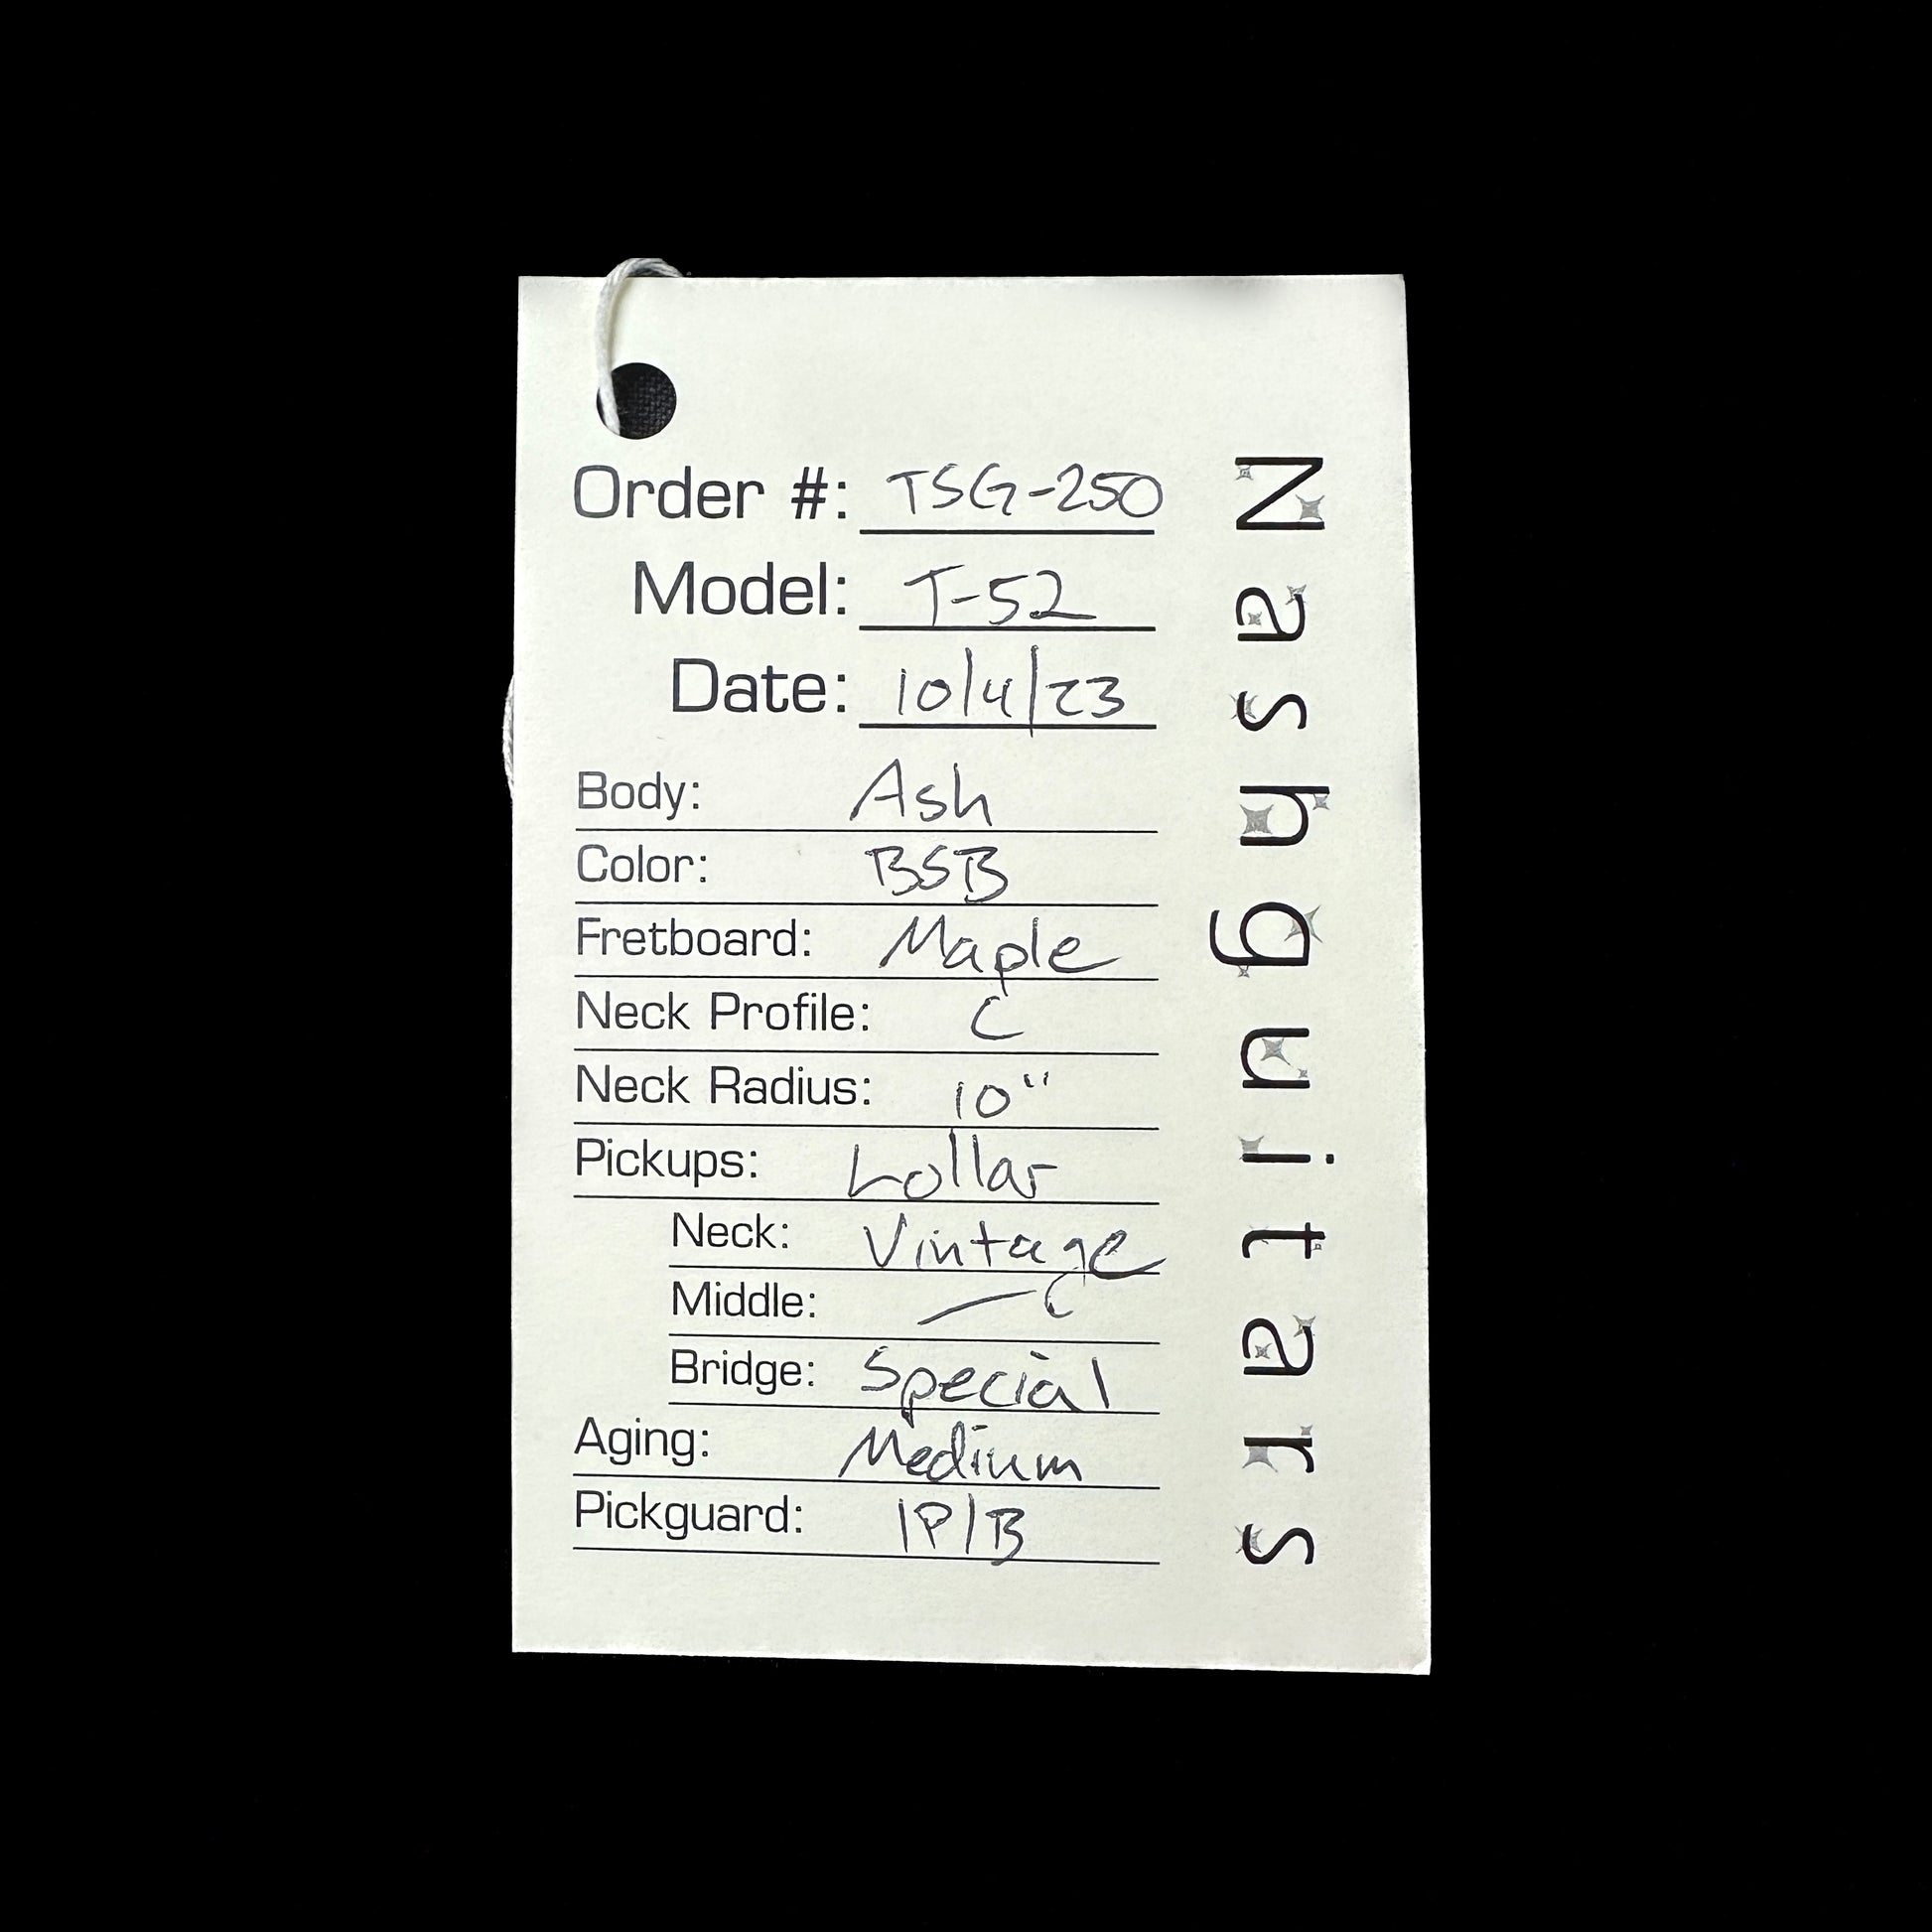 Order #: TSG-250
Model: T-52
Date: 10/4/23
Body: Ash
Color: BSB
Fretboard: Maple
Neck Profile: C
Neck Radius: 10"
Pickups: Lollar
Neck: Vintage
Middle: —
Bridge: Special
Aging: Medium
Pickguard: 1P/B
Nashguitars